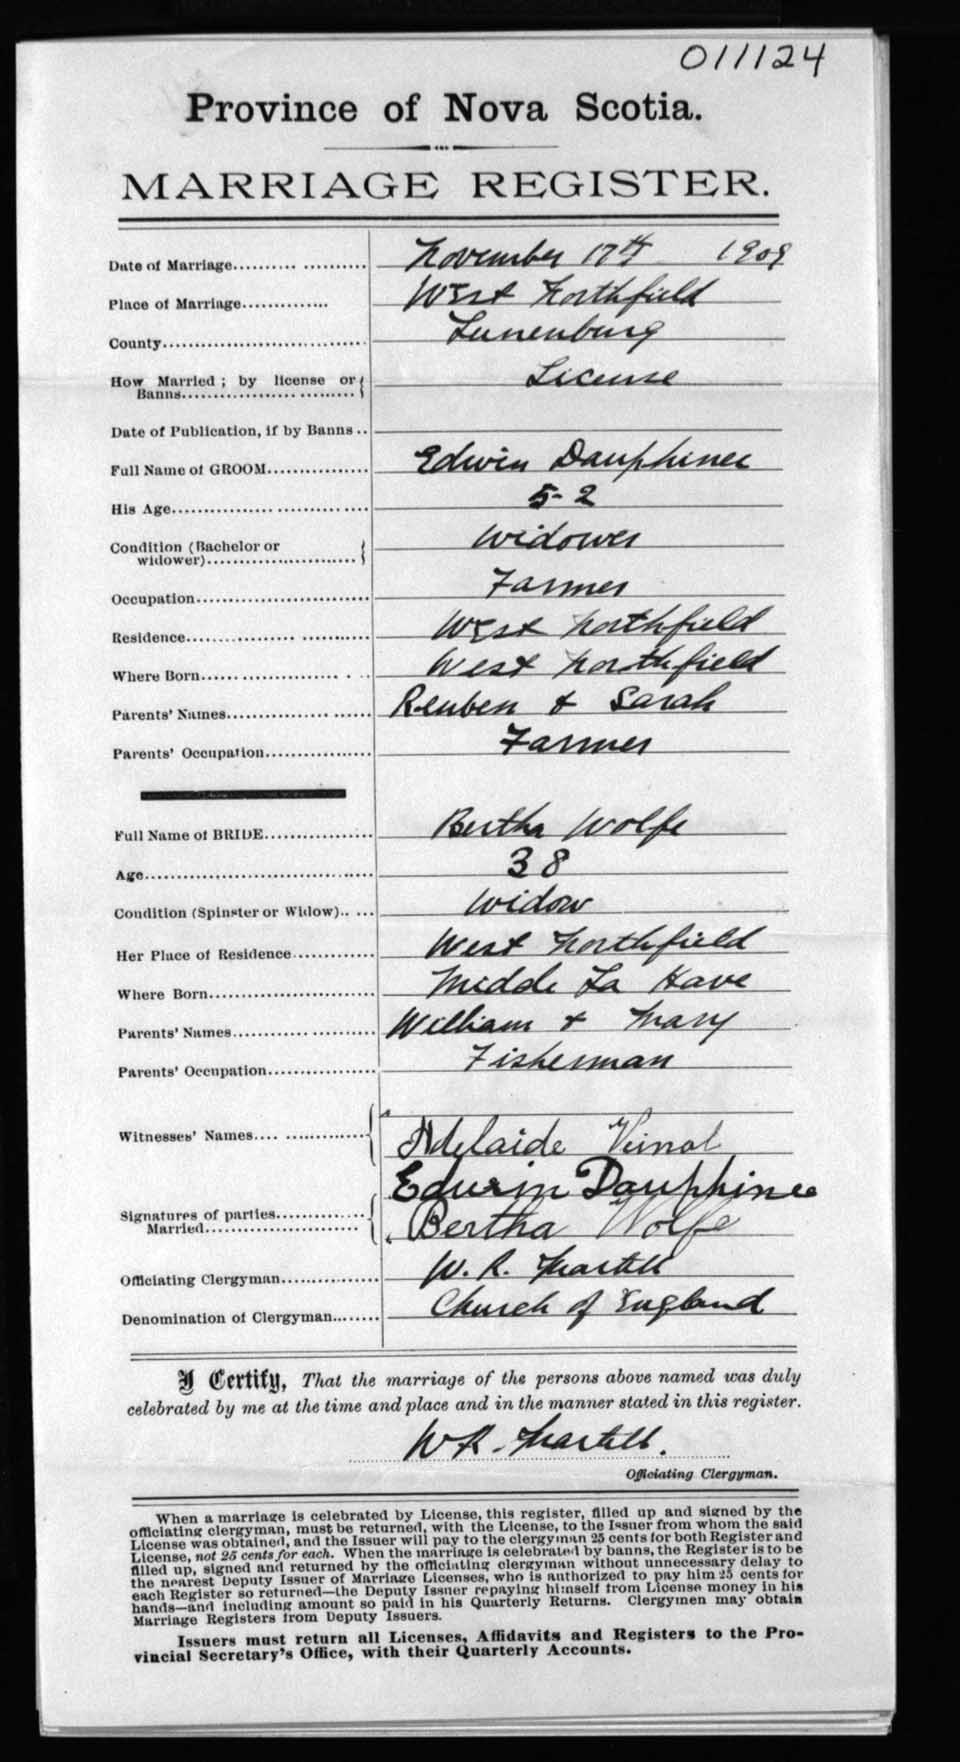 011124
Province of Nova Scotia.
MARRIAGE REGISTER.
Date of Marriage..................... November 17th 1909
Place of Marriage............. West Northfield
County............................. Lunenburg
How Married; by license or Banns............................. License
Date of Publication, if by Banns..
Full Name of GROOM............... Edwin Dauphinee
His Age............................. 52
Condition (Bachelor or widower)........................ Widower
Occupation............................. Farmer
Residence........................... West Northfield
Where Born........................ West Northfield
Parents' Names..................... Reuben & Sarah
Parents' Occupation................ Farmer
Full Name of BRIDE................ Bertha Wolfe
Age................................... 38
Condition (Spinster or Widow)..... Widow
Her Place of Residence............ West Northfield
Where Born......................... Midde La Have
Parents' Names..................... William & Mary
Parents' Occupation................ Fisherman
Witnesses' Names.................. Adelaide Veinot
Edwin Dauphinee
Signatures of parties Married........................ Bertha Wolfe
Officiating Clergyman.............. W. R. Martell
Denomination of Clergyman........ Church of England
I Certify, That the marriage of the persons above named was duly
celebrated by me at the time and place and in the manner stated in this register.
W R. Martell.
Officiating Clergyman.
When a marriage is celebrated by License, this register, filled up and signed by the
officiating clergyman, must be returned, with the License, to the Issuer from whom the said
License was obtained, and the Issuer will pay to the clergyman 25 cents for both Register and
License, not 25 cents for each. When the marriage is celebrated by banns, the Register is to be
filled up, signed and returned by the officiating clergyman without unnecessary delay to
the nearest Deputy Issuer of Marriage Licenses, who is authorized to pay him 25 cents for
each Register so returned—the Deputy Issuer repaying himself from License money in his
hands—and including amount so paid in his Quarterly Returns. Clergymen may obtain
Marriage Registers from Deputy Issuers.
Issuers must return all Licenses, Affidavits and Registers to the Pro-
vincial Secretary's Office, with their Quarterly Accounts.